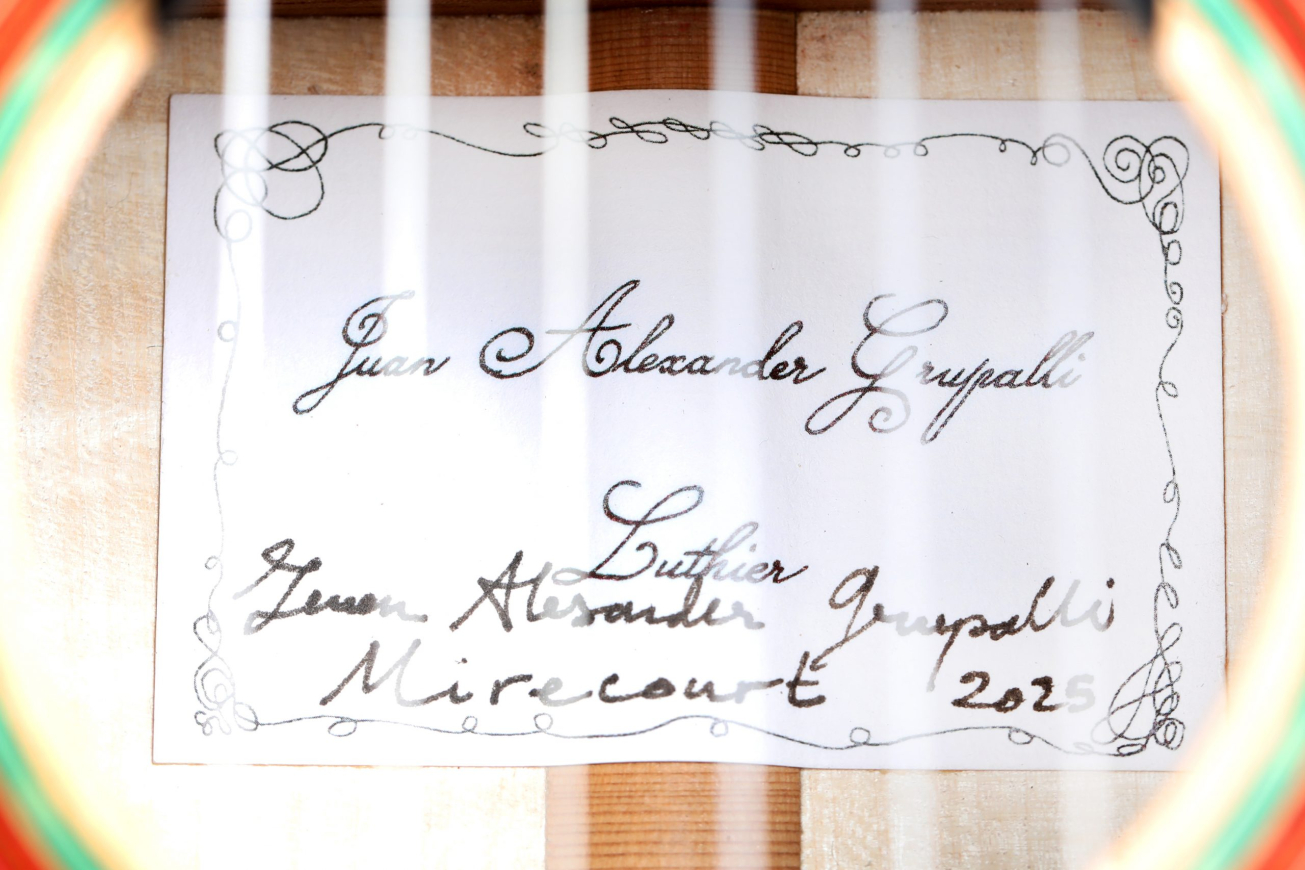 Juan Alexander Grupalli
Luthier
Juan Alexander Grupalli
Mirecourt 2025